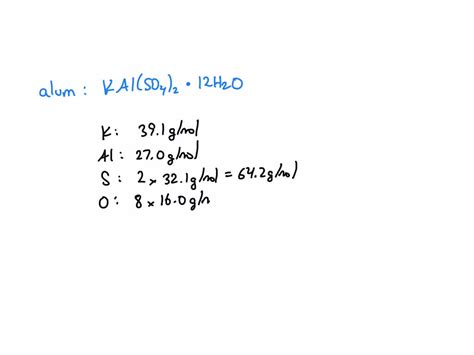 alum: KAl(SO4)2 • 12H2O
K: 39.1g/mol
Al: 27.0g/mol
S: 2 × 32.1g/mol = 64.2g/mol
O: 8 × 16.0g/n